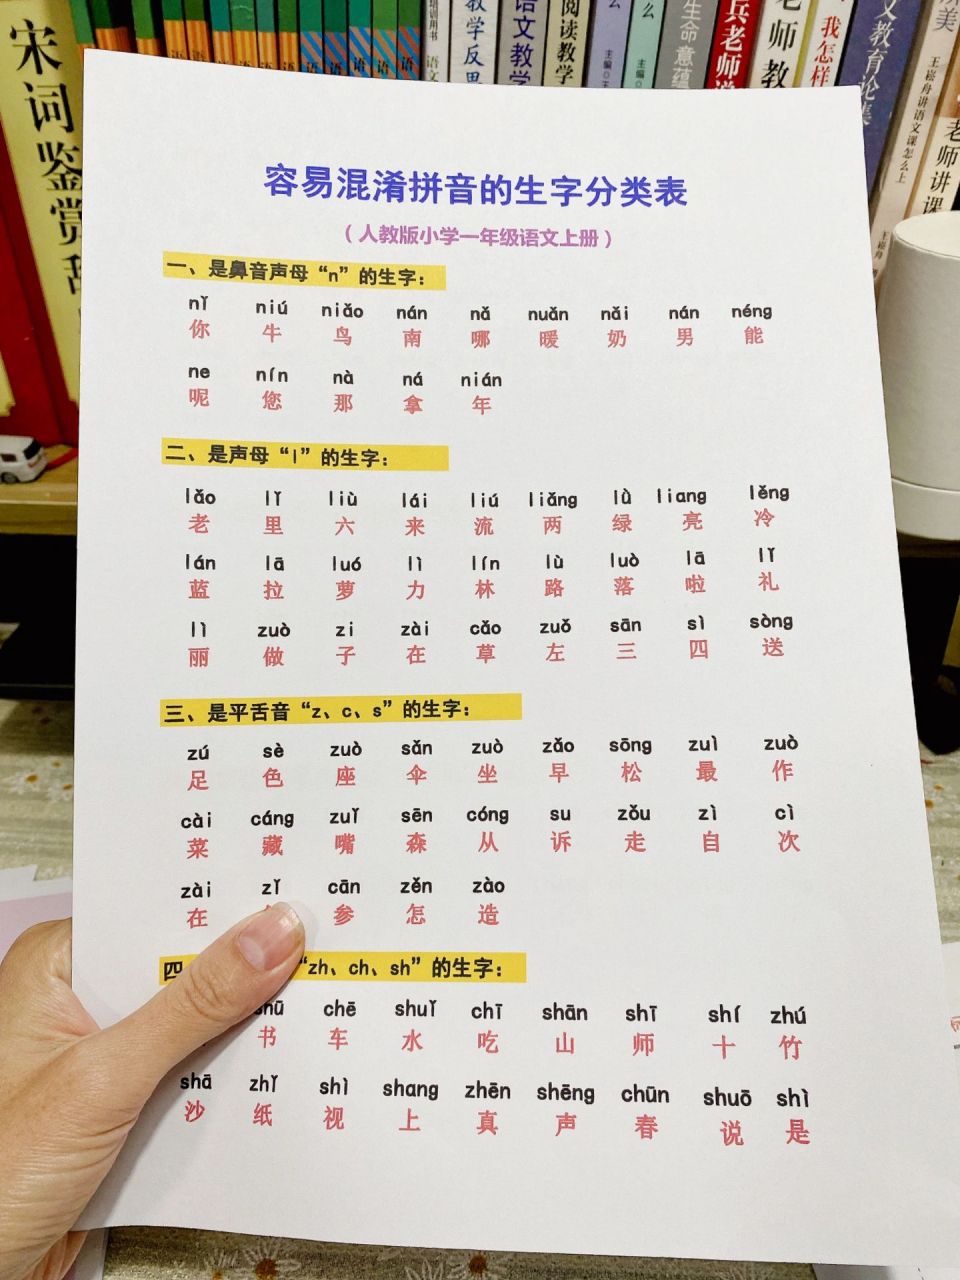 宋词鉴赏
教学反思
语文教学
阅读教学
主编
主编
生命意蕴
兵老师
老师教
我怎样
文教育论集
王崧舟讲语文课怎么上
老师讲课
容易混淆拼音的生字分类表
（人教版小学一年级语文上册）
一、是鼻音声母“n”的生字：
nǐ niú niǎo nán nǎ nuǎn nǎi nán néng
你 牛 鸟 南 哪 暖 奶 男 能
ne nín nà ná nián
呢 您 那 拿 年
二、是声母“l”的生字：
lǎo lǐ liù lái liú liǎng lǜ liang lěng
老 里 六 来 流 两 绿 亮 冷
lán lā luó lì lín lù luò lā lǐ
蓝 拉 萝 力 林 路 落 啦 礼
lì zuò zi zài cǎo zuǒ sān sì sòng
丽 做 子 在 草 左 三 四 送
三、是平舌音“z、c、s”的生字：
zú sè zuò sǎn zuò zǎo sōng zuì zuò
足 色 座 伞 坐 早 松 最 作
cài cáng zuǐ sēn cóng su zǒu zì cì
菜 藏 嘴 森 从 诉 走 自 次
zài zǐ cān zěn zào
在 参 怎 造
四 “zh、ch、sh”的生字：
shū chē shuǐ chī shān shī shí zhú
书 车 水 吃 山 师 十 竹
shā zhǐ shì shang zhēn shēng chūn shuō shì
沙 纸 视 上 真 声 春 说 是